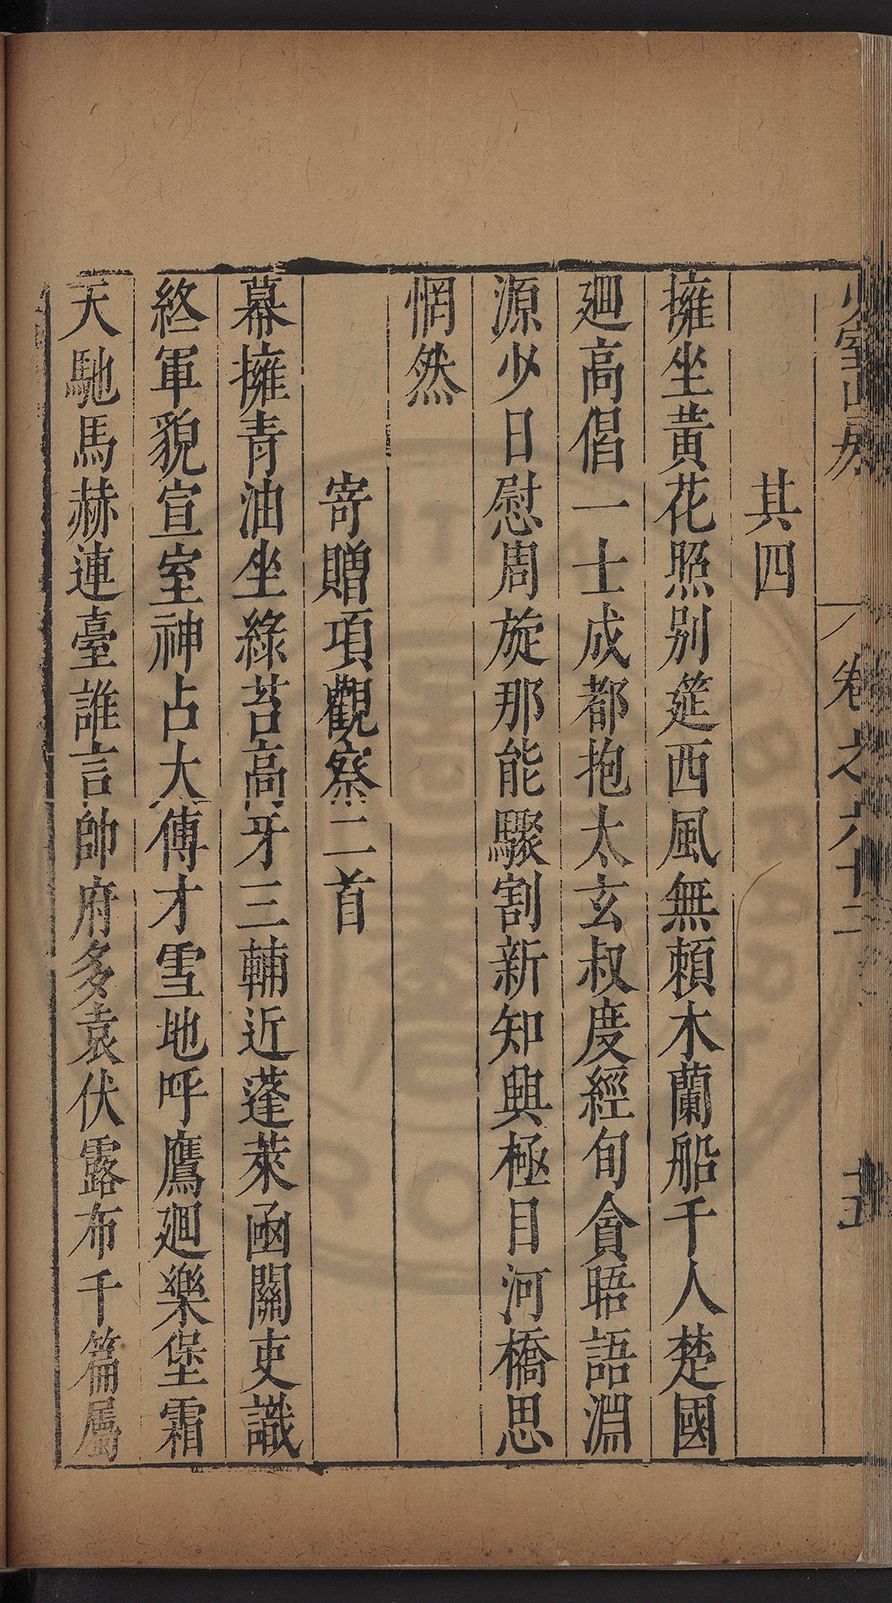 少室山房
卷之六十二
其四
擁坐黃花照别筵西風無賴木蘭船千人楚國
廻高倡一士成都抱太玄叔度經旬貪晤語淵
源少日慰周旋那能驟割新知興極目河橋思
惘然
寄贈項觀察二首
幕擁青油坐綠苔高牙三輔近蓬萊函關吏識
終軍貌宣室神占大傅才雪地呼鷹廻樂堡霜
天馳馬赫連臺誰言帥府多袁伏露布千篇屬